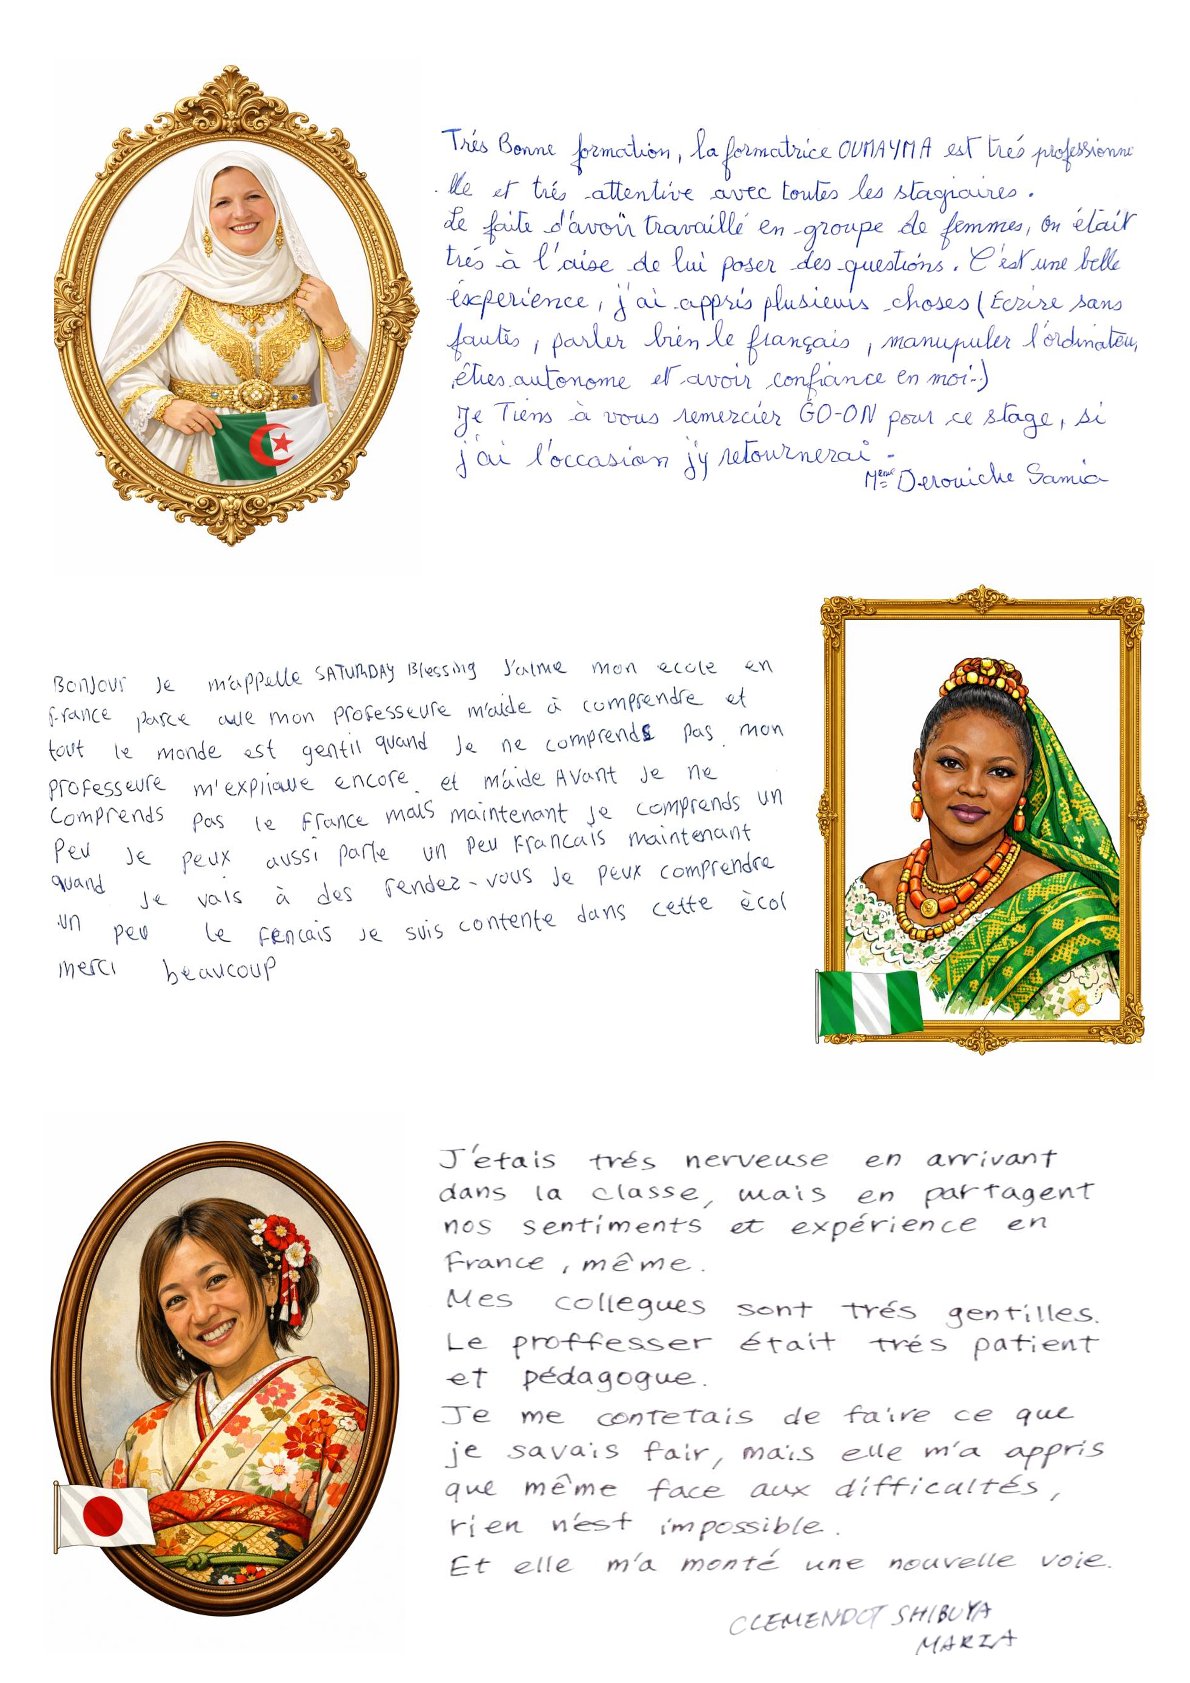 Trés Bonne formation, la formatrice OUMAYMA est trés professionne
lle et trés attentive avec toutes les stagiaires.
Le faite d'avoir travaillé en groupe de femmes, on était
trés à l'aise de lui poser des questions. C'est une belle
éxperience, j'ai appris plusieurs choses (Ecrire sans
fautes, parler bien le français, manupuler l'ordinateur,
êtres autonome et avoir confiance en moi..)
Je Tiens à vous remercier GO-ON pour ce stage, si
j'ai l'occasion j'y retournerai.
Mme Derouiche Samia
Bonjour Je m'appelle SATURDAY Blessing J'aime mon ecole en
France parce que mon professeure m'aide à comprendre et
tout le monde est gentil quand Je ne comprends pas mon
professeure m'explique encore et m'aide Avant Je ne
Comprends pas le France mais maintenant je comprends un
Peu Je peux aussi parle un peu Francais maintenant
quand Je vais à des rendez-vous Je peux comprendre
un peu le Frencais Je suis contente dans cette ècol
merci beaucoup
J'étais trés nerveuse en arrivant
dans la classe, mais en partagent
nos sentiments et expérience en
France, même.
Mes collegues sont trés gentilles.
Le proffesser était trés patient
et pédagogue.
Je me contetais de faire ce que
je savais fair, mais elle m'a appris
que même face aux difficultés,
rien n'est impossible.
Et elle m'a monté une nouvelle voie.
CLEMENDOT SHIBUYA
MARIA